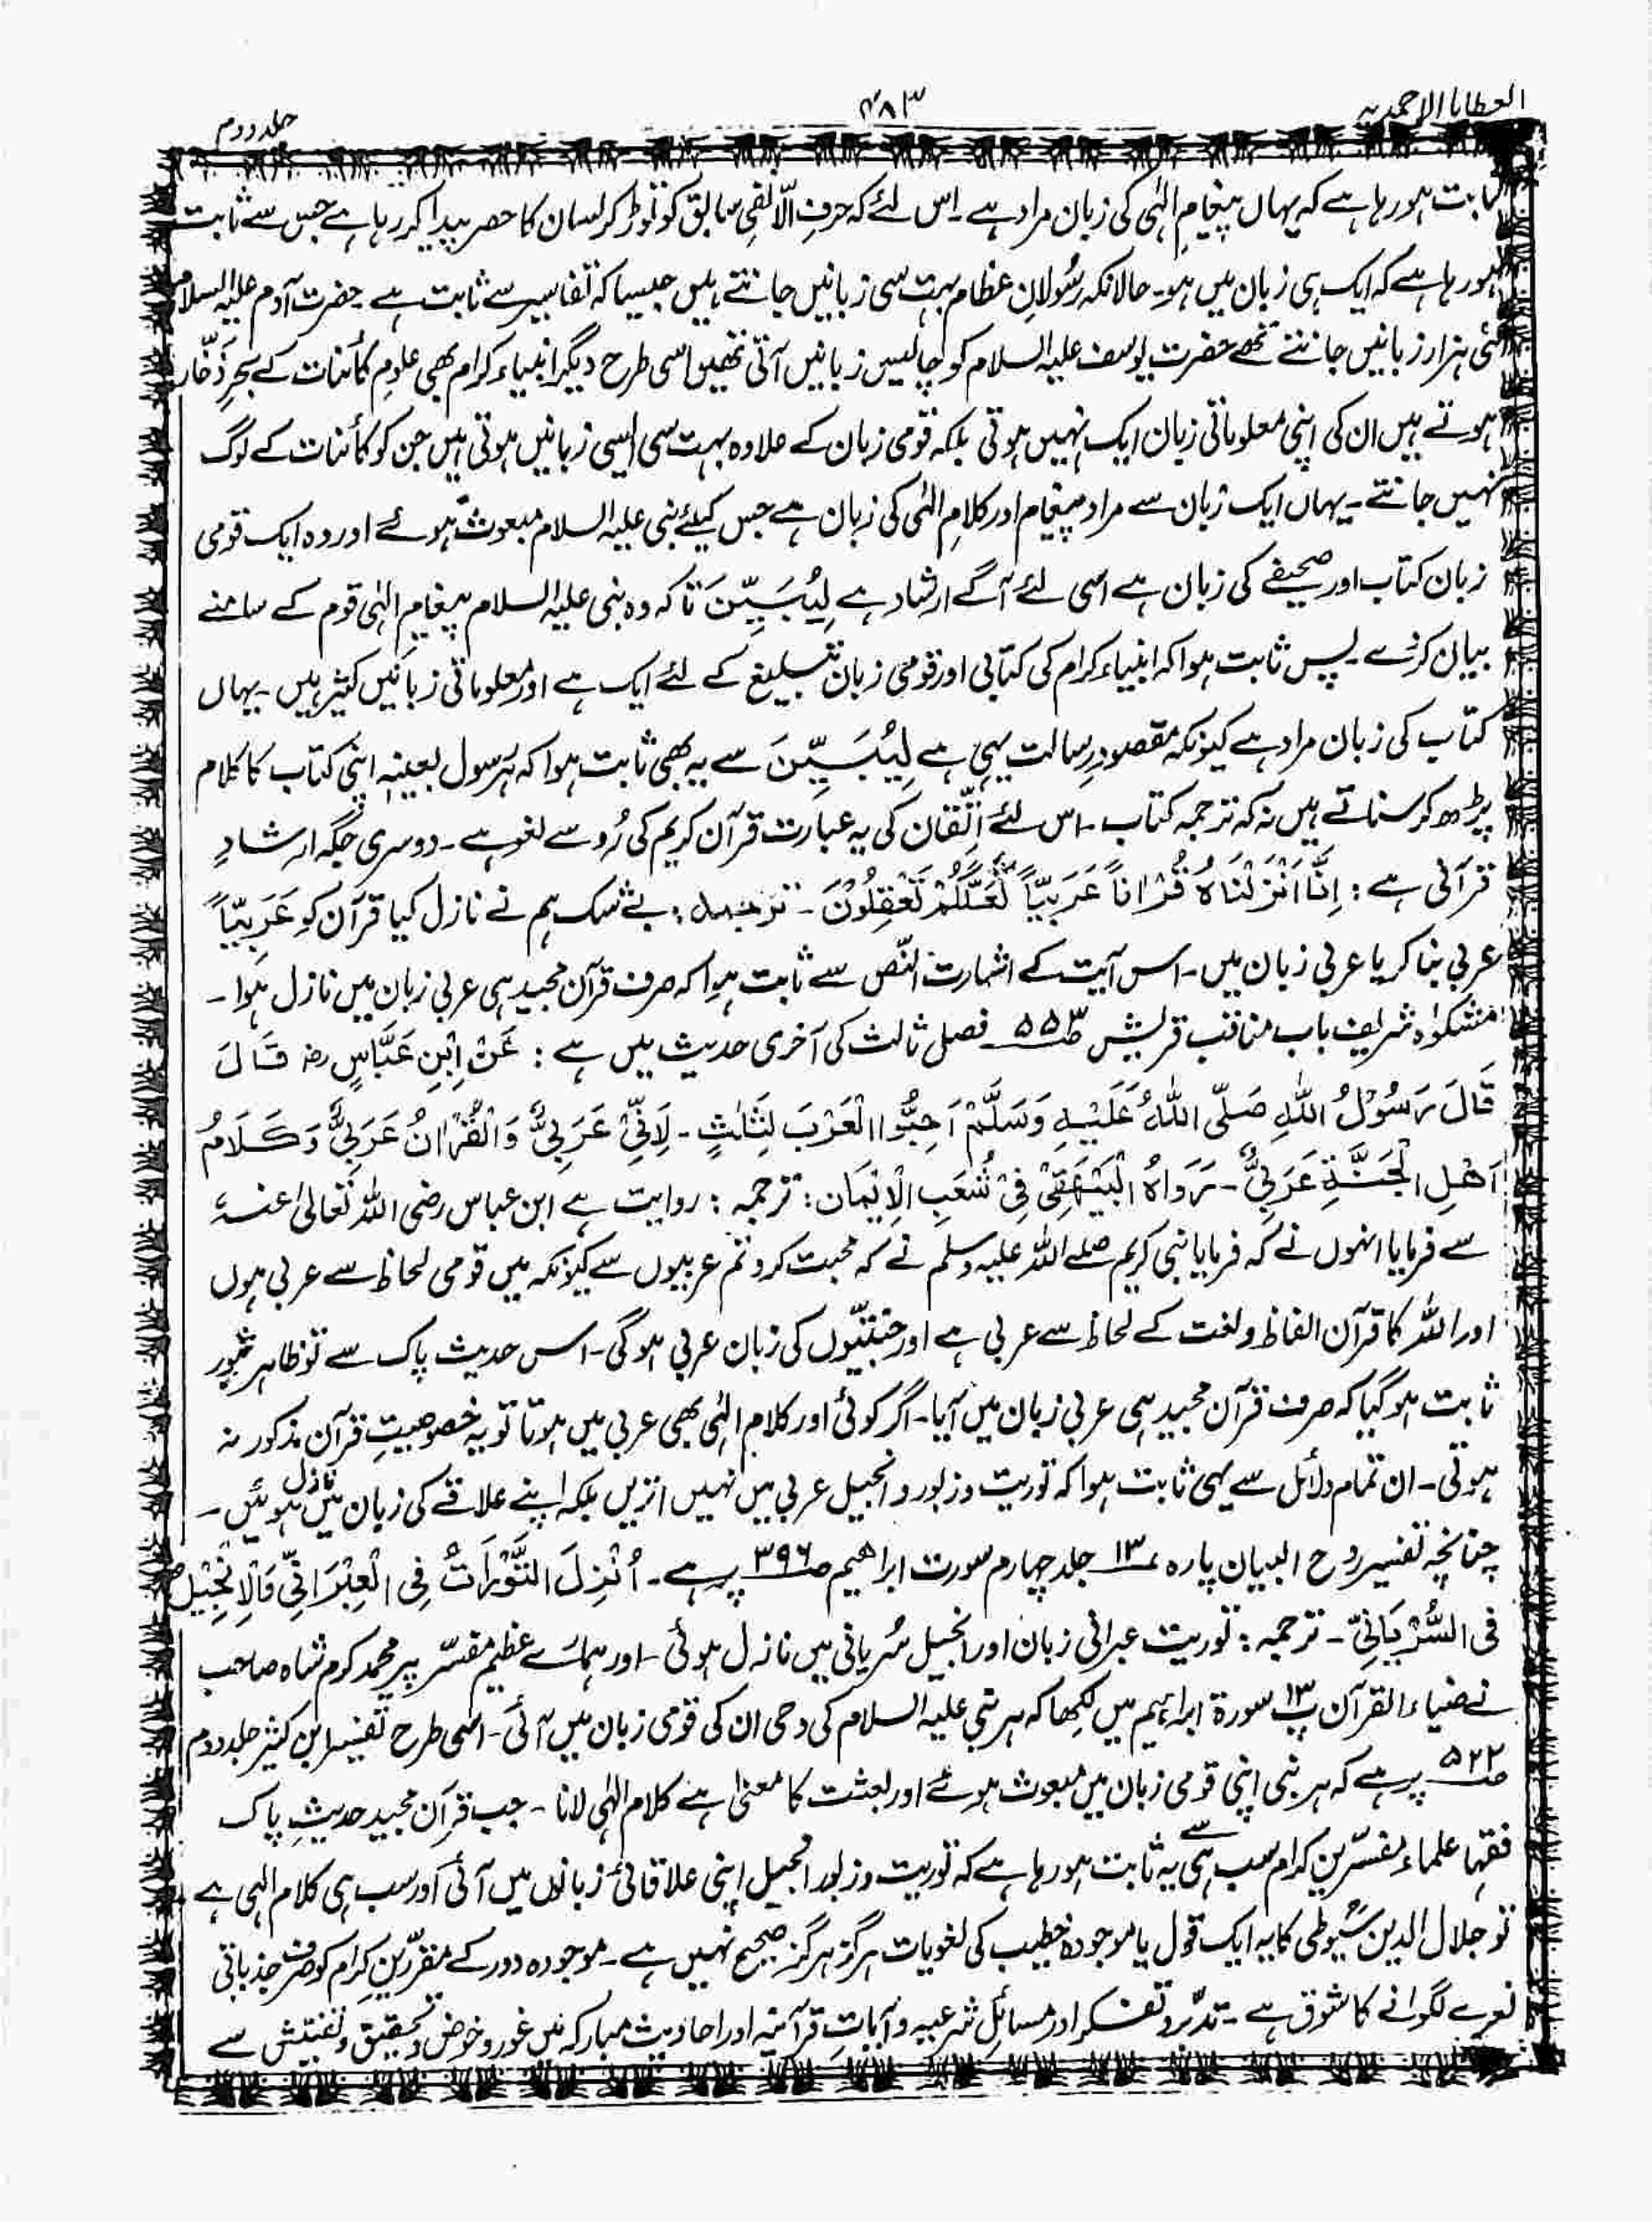 العطایا الاحمدیہ
۴۸۳
جلد دوم
ثابت ہو رہا ہے کہ یہاں پیغامِ الٰہی کی زبان مراد ہے ۔ اس لئے کہ حرفِ الّا نفیِ سابق کو توڑ کر لسان کا حصر پیدا کر رہا ہے جس سے ثابت
ہو رہا ہے کہ ایک ہی زبان میں ہو ۔ حالانکہ رسُولانِ عظام بہت سی زبانیں جانتے ہیں جیسا کہ تفاسیر سے ثابت ہے ۔ حضرت آدم علیہ السلام
کئی ہزار زبانیں جانتے تھے حضرت یوسف علیہ السلام کو چالیس زبانیں آتی تھیں اسی طرح دیگر انبیاءِ کرام بھی علومِ کائنات کے بحرِ ذَخّار
ہوتے ہیں ان کی اپنی معلوماتی زبان ایک نہیں ہوتی بلکہ قومی زبان کے علاوہ بہت سی ایسی زبانیں ہوتی ہیں جن کو کائنات کے لوگ
نہیں جانتے ۔ یہاں ایک زبان سے مراد پیغام اور کلامِ الٰہی کی زبان ہے جس کیلئے نبی علیہ السلام مبعوث ہوئے اور وہ ایک قومی
زبان کتاب اور صحیفے کی زبان ہے اسی لئے آگے ارشاد ہے لِیُبَیِّنَ تاکہ وہ نبی علیہ السلام پیغامِ الٰہی قوم کے سامنے
بیان کرئے ۔ پس ثابت ہوا کہ انبیاءِ کرام کی کتابی اور قومی زبان تبلیغ کے لئے ایک ہے اور معلوماتی زبانیں کثیر ہیں ۔ یہاں
کتاب کی زبان مراد ہے کیونکہ مقصودِ رسالت یہی ہے لِیُبَیِّنَ سے یہ بھی ثابت ہوا کہ ہر رسول بعینہٖ اپنی کتاب کا کلام
پڑھ کر سناتے ہیں نہ کہ ترجمہ کتاب ۔ اس لئے اِتِّقان کی یہ عبارت قرآن کریم کی رُو سے لغو ہے ۔ دوسری جگہ ارشادِ
قرآنی ہے : اِنَّا اَنْزَلْنَاہُ قُرْاٰناً عَرَبِیّاً لَّعَلَّکُمْ تَعْقِلُوْنَ ۔ ترجمہ : بے شک ہم نے نازل کیا قرآن کو عَرَبِیّاً
عربی بنا کر یا عربی زبان میں ۔ اس آیت کے اشارت النّص سے ثابت ہوا کہ صرف قرآن مجید ہی عربی زبان میں نازل ہوا ۔
مشکوٰہ شریف باب مناقب قریش صـ ۵۵۳ فصل ثالث کی آخری حدیث میں ہے : عَنْ اِبْنِ عَبَّاسٍ رضہ قَالَ
قَالَ رَسُوْلُ اللّٰہِ صَلَّی اللّٰہُ عَلَیْہِ وَسَلَّمْ اَحِبُّوا الْعَرَبَ لِثَلٰثٍ ۔ لِاَنِّیْ عَرَبِیٌّ وَالْقُرْاٰنُ عَرَبِیٌّ وَکَلَامُ
اَھْلِ الْجَنَّۃِ عَرَبِیٌّ ۔ رَوَاہُ الْبَیْھَقِیْ فِیْ شُعَبِ الْاِیْمَان : ترجمہ : روایت ہے ابن عباس رضی اللہ تعالیٰ عنہٗ
سے فرمایا انہوں نے کہ فرمایا نبی کریم صلے اللہ علیہ وسلم نے کہ محبت کرو تم عربیوں سے کیونکہ میں قومی لحاظ سے عربی ہوں
اور اللہ کا قرآن الفاظ و لغت کے لحاظ سے عربی ہے اور جنتیّوں کی زبان عربی ہوگی ۔ اس حدیث پاک سے تو ظاہر ظہور
ثابت ہو گیا کہ صرف قرآن مجید ہی عربی زبان میں آیا ۔ اگر کوئی اور کلامِ الٰہی بھی عربی میں ہوتا تو یہ خصوصیتِ قرآن مذکور نہ
ہوتی ۔ ان تمام دلائل سے یہی ثابت ہوا کہ توریت و زبور و انجیل عربی میں نہیں اتریں بلکہ اپنے علاقے کی زبان میں نازل ہوئیں ۔
چنانچہ تفسیر روح البیان پارہ ؀۱۳ جلد چہارم سورت ابراھیم صـ ۳۹۶ پر ہے ۔ اُنْزِلَ التَّوْرَاتُ فِی الْعِبْرَانِیِّ وَالْاِنْجِیْلُ
فی السُّرْیَانِیِّ ۔ ترجمہ : توریت عبرانی زبان اور انجیل سُریانی میں نازل ہوئی ۔ اور ہمارے عظیم مفسّر پیر محمد کرم شاہ صاحب
نے ضیاء القرآن پ۱۳ سورۃ ابراہیم میں لکھا کہ ہر نبی علیہ السلام کی وحی ان کی قومی زبان میں آئی ۔ اسی طرح تفسیر ابن کثیر جلد دوم
صـ ۵۲۲ پر ہے کہ ہر نبی اپنی قومی زبان میں مبعوث ہوئے اور بعثت کا معنیٰ ہے کلام الٰہی لانا ۔ جب قرآن مجید حدیثِ پاک
فقہا علماء مفسّرینِ کرام سب ہی سے یہ ثابت ہو رہا ہے کہ توریت و زبور انجیل اپنی علاقائی زبانوں میں آئی اور سب ہی کلام الٰہی ہے
تو جلال الدین سُیوطی کا یہ ایک قول یا موجودہ خطیب کی لغویات ہرگز ہرگز صحیح نہیں ہے ۔ موجودہ دور کے مقرّرینِ کِرام کو صرف جذباتی
نعرے لگوانے کا شوق ہے ۔ تدبّر و تفکر اور مسائلِ شرعیہ و آیاتِ قرآنیہ اور احادیث مبارکہ میں غور و خوض و تحقیق و تفتیش سے